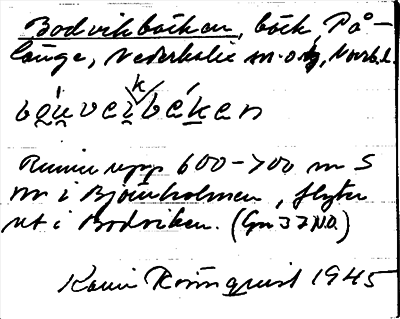 Bodvikbäcken, bäck, På-
länge, Nederkalix sn. o. tg, Norrb. l.
Rinner upp 600-700 m S
om i Björnholmen, flyter
ut i Bodviken. (Gn 37 NO.)
Karin Rönnquist 1945